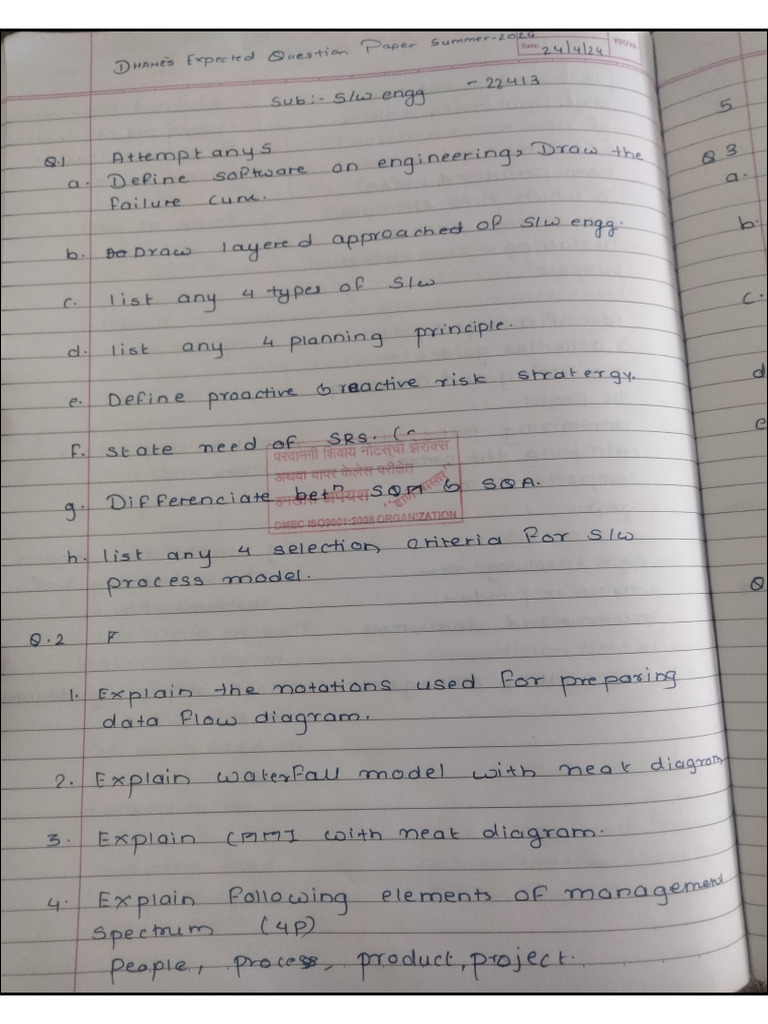 DHANE'S Expected Question Paper Summer-2024
Date: 24/4/24
YOUVA
Sub:- S/w engg - 22413
Q.1 Attempt any 5
a. Define software an engineering, Draw the
failure curve.
b. Draw layered approached of S/w engg.
c. list any 4 types of S/w
d. list any 4 planning principle.
e. Define proactive & reactive risk stratergy.
f. State need of SRS.
परवानगी शिवाय नोटसची झेरॉक्स
अथवा वापर केलेस परीक्षेत
अपयश
DMEC ISO9001:2008 ORGANIZATION
g. Differenciate betn SQM & SQA.
h. list any 4 selection criteria for S/w
process model.
Q.2
1. Explain the notations used for preparing
data flow diagram.
2. Explain waterfall model with neat diagram
3. Explain CMMI with neat diagram.
4. Explain following elements of management
spectrum (4P)
people, process, product, project.
5
Q 3
a.
b.
c.
d
e
Q